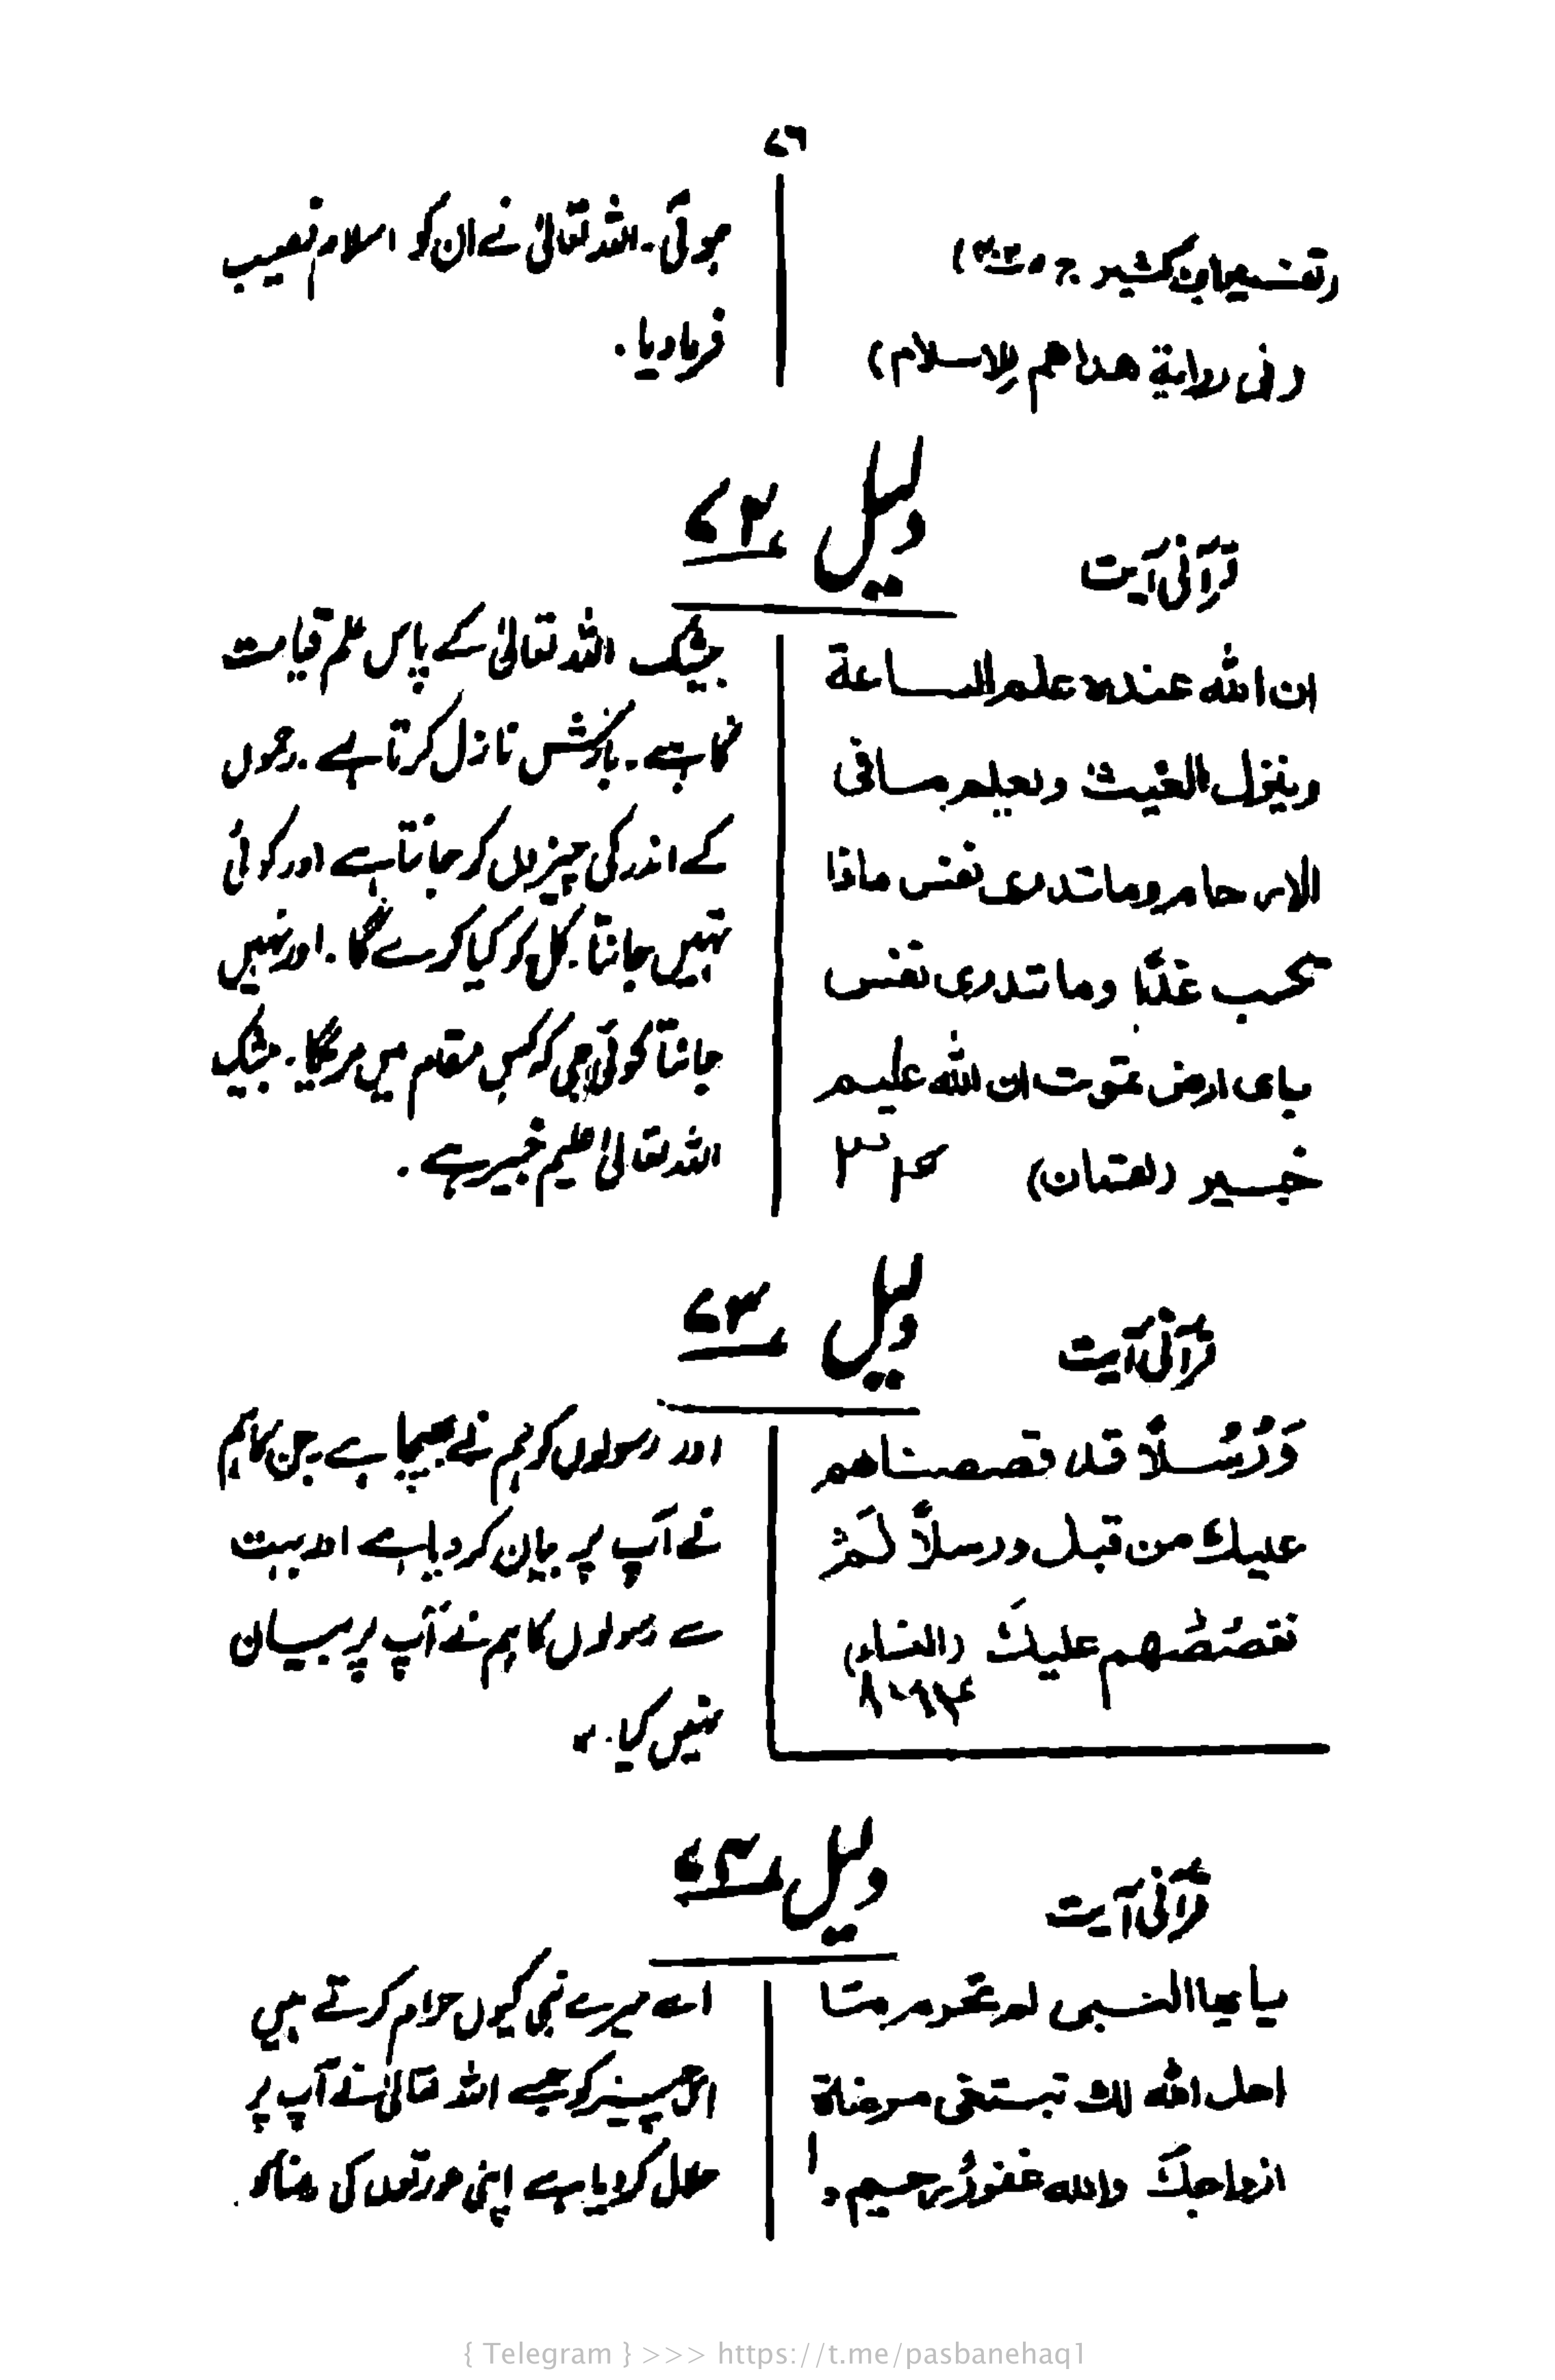 ۷۶
(تفسیر ابن کثیر ج
(وفی روایة هداهم للاسلام)
ہوئی۔ اللہ تعالیٰ نے ان کو اسلام نصیب
فرما دیا۔
قرآنی آیت
دلیل ۷۲
ان الله عنده علم الساعة
وینزل الغیث ویعلم ما فی
الارحام وما تدری نفس ماذا
تکسب غدًا وما تدری نفس
بای ارض تموت ان الله علیم
خبیر (لقمان) ۳۴
بیشک اللہ تعالیٰ کے پاس علم قیامت
کا ہے۔ بارش نازل کرتا ہے۔ رحموں
کے اندر کی چیزوں کو جانتا ہے اور کوئی
نہیں جانتا۔ کل کو کیا کرے گا۔ اور نہیں
جانتا کوئی جی کو کس مقام میں مریگا۔ بیشک
اللہ تعالیٰ علیم خبیر ہے۔
قرآنی آیت
دلیل ۷۳
وَرُسُلًا قد قصصناهم
علیك من قبل ورسلاً لَمْ
نقصُصْهم علیكَ (النساء)
اور رسولوں کو ہم نے بھیجا ہے جن کا ہم
نے آپ پر بیان کر دیا ہے اور بہت
سے رسولوں کا ہم نے آپ پر بیان
نہیں کیا۔
قرآنی آیت
دلیل ۷۴
یا ایها النبی لم تحرم ما
احل الله لك تبتغی مرضاة
ازواجكَ والله غفورٌ رحیم۔
اے میرے نبی کیوں حرام کرتے ہیں
اس چیز کو جسے اللہ تعالیٰ نے آپ پر
حلال کر دیا ہے اپنی عورتوں کی رضا کو
{ Telegram } >>> https://t.me/pasbanehaq1